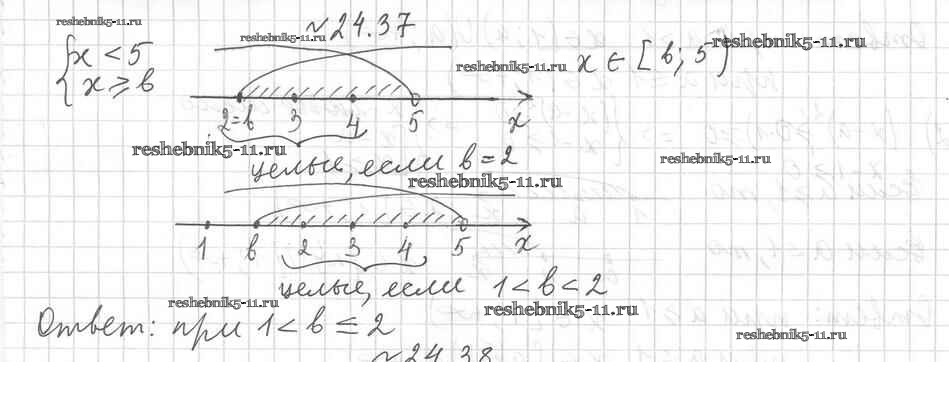 reshebnik5-11.ru
№24.37
reshebnik5-11.ru
{x < 5
x ⩾ b
reshebnik5-11.ru
x ∈ [b; 5)
reshebnik5-11.ru
2=b 3 4 5 x
reshebnik5-11.ru
целые, если b = 2
reshebnik5-11.ru
reshebnik5-11.ru
1 b 2 3 4 5 x
целые, если 1 < b < 2
reshebnik5-11.ru
reshebnik5-11.ru
Ответ: при 1 < b ≤ 2
reshebnik5-11.ru
№24.38